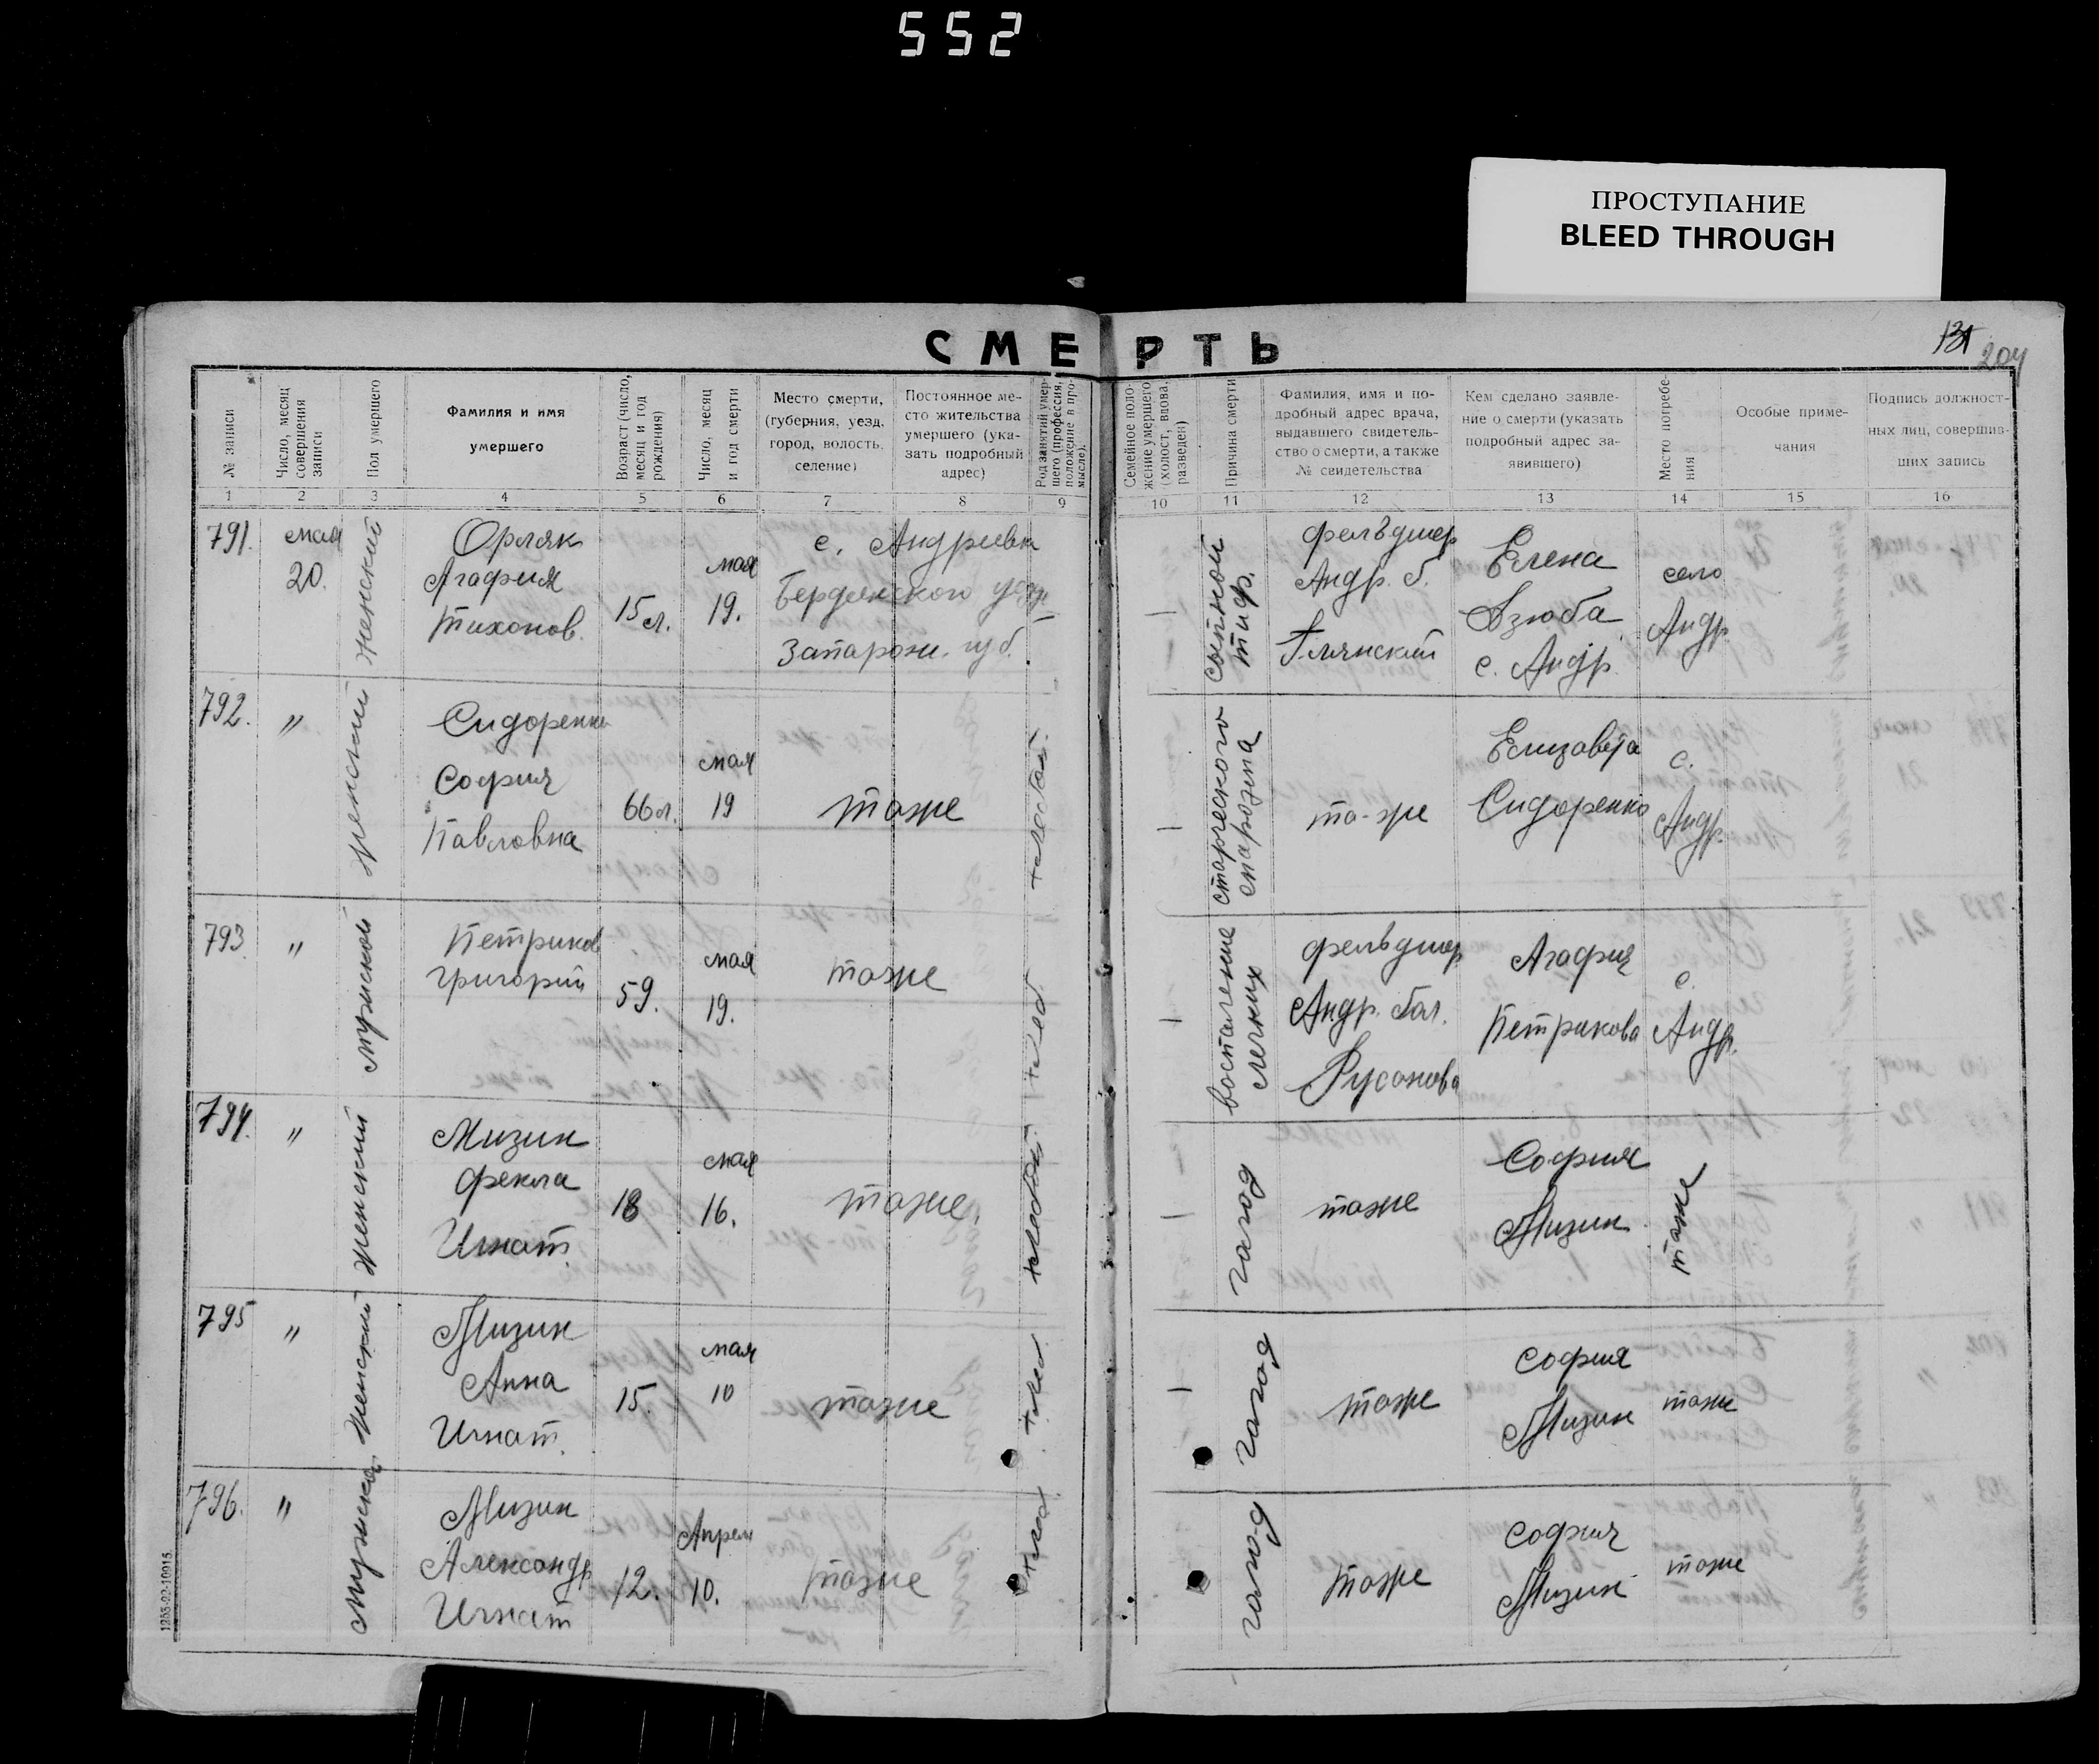 552
ПРОСТУПАНИЕ
BLEED THROUGH
СМЕРТЬ
204
№ записи
Число, месяц совершения записи
Пол умершего
Фамилия и имя
умершего
Возраст (число, месяц и год рождения)
Число, месяц и год смерти
Место смерти,
(губерния, уезд,
город, волость,
селение)
Постоянное ме-
сто жительства
умершего (ука-
зать подробный
адрес)
Род занятий умер-
шего (профессия,
положение в про-
мысле).
Семейное поло-
жение умершего
(холост, вдова,
разведен)
Причина смерти
Фамилия, имя и по-
дробный адрес врача,
выдавшего свидетель-
ство о смерти, а также
№ свидетельства
Кем сделано заявле-
ние о смерти (указать
подробный адрес за-
явившего)
Место погребе-
ния
Особые приме-
чания
Подпись должност-
ных лиц, совершив-
ших запись
1 2 3 4 5 6 7 8 9 10 11 12 13 14 15 16
791.
мая
20.
женский
Орляк
Агафия
Тихонов.
15 л.
мая
19.
с. Андриевка
Бердянского уезд
Запарож. губ.
—
сыпной
тиф.
фельдшер
Андр. б.
Глянский
Елена
Дзюба
с. Андр.
село
Андр.
792.
"
женский
Сидоренко
София
Павловна
66 л.
мая
19
тоже
—
старческого
маразма
то-же
Елизавета
Сидоренко
с.
Андр.
793.
"
мужской
Петриков
григорий
59.
мая
19.
тоже
—
воспаление
легких
фельдшер
Андр. бол.
Русонова
Агафия
Петрикова
с.
Андр.
794.
"
женский
Мизин
фекла
Игнат.
18
мая
16.
тоже.
—
голод
тоже
София
Мизин
тоже
795
"
женский
Мизин
Анна
Игнат.
15.
мая
10
тоже
—
голод
тоже
София
Мизин
тоже
796.
"
Мужской
Мизин
Александр
Игнат
12.
Апреля
10.
тоже
голод
тоже
София
Мизин
тоже
1253-22-10015